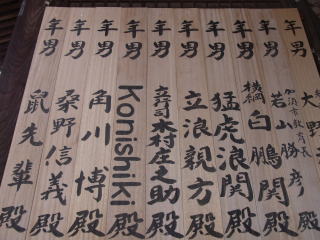 年男 大野
年男 加須市教育長 若山勝彦 殿
年男 横綱 白鵬関 殿
年男 猛虎浪関 殿
年男 立浪親方 殿
年男 立行司 木村庄之助 殿
年男 Konishiki 殿
年男 角川博 殿
年男 桑野信義 殿
年男 鼠先輩 殿